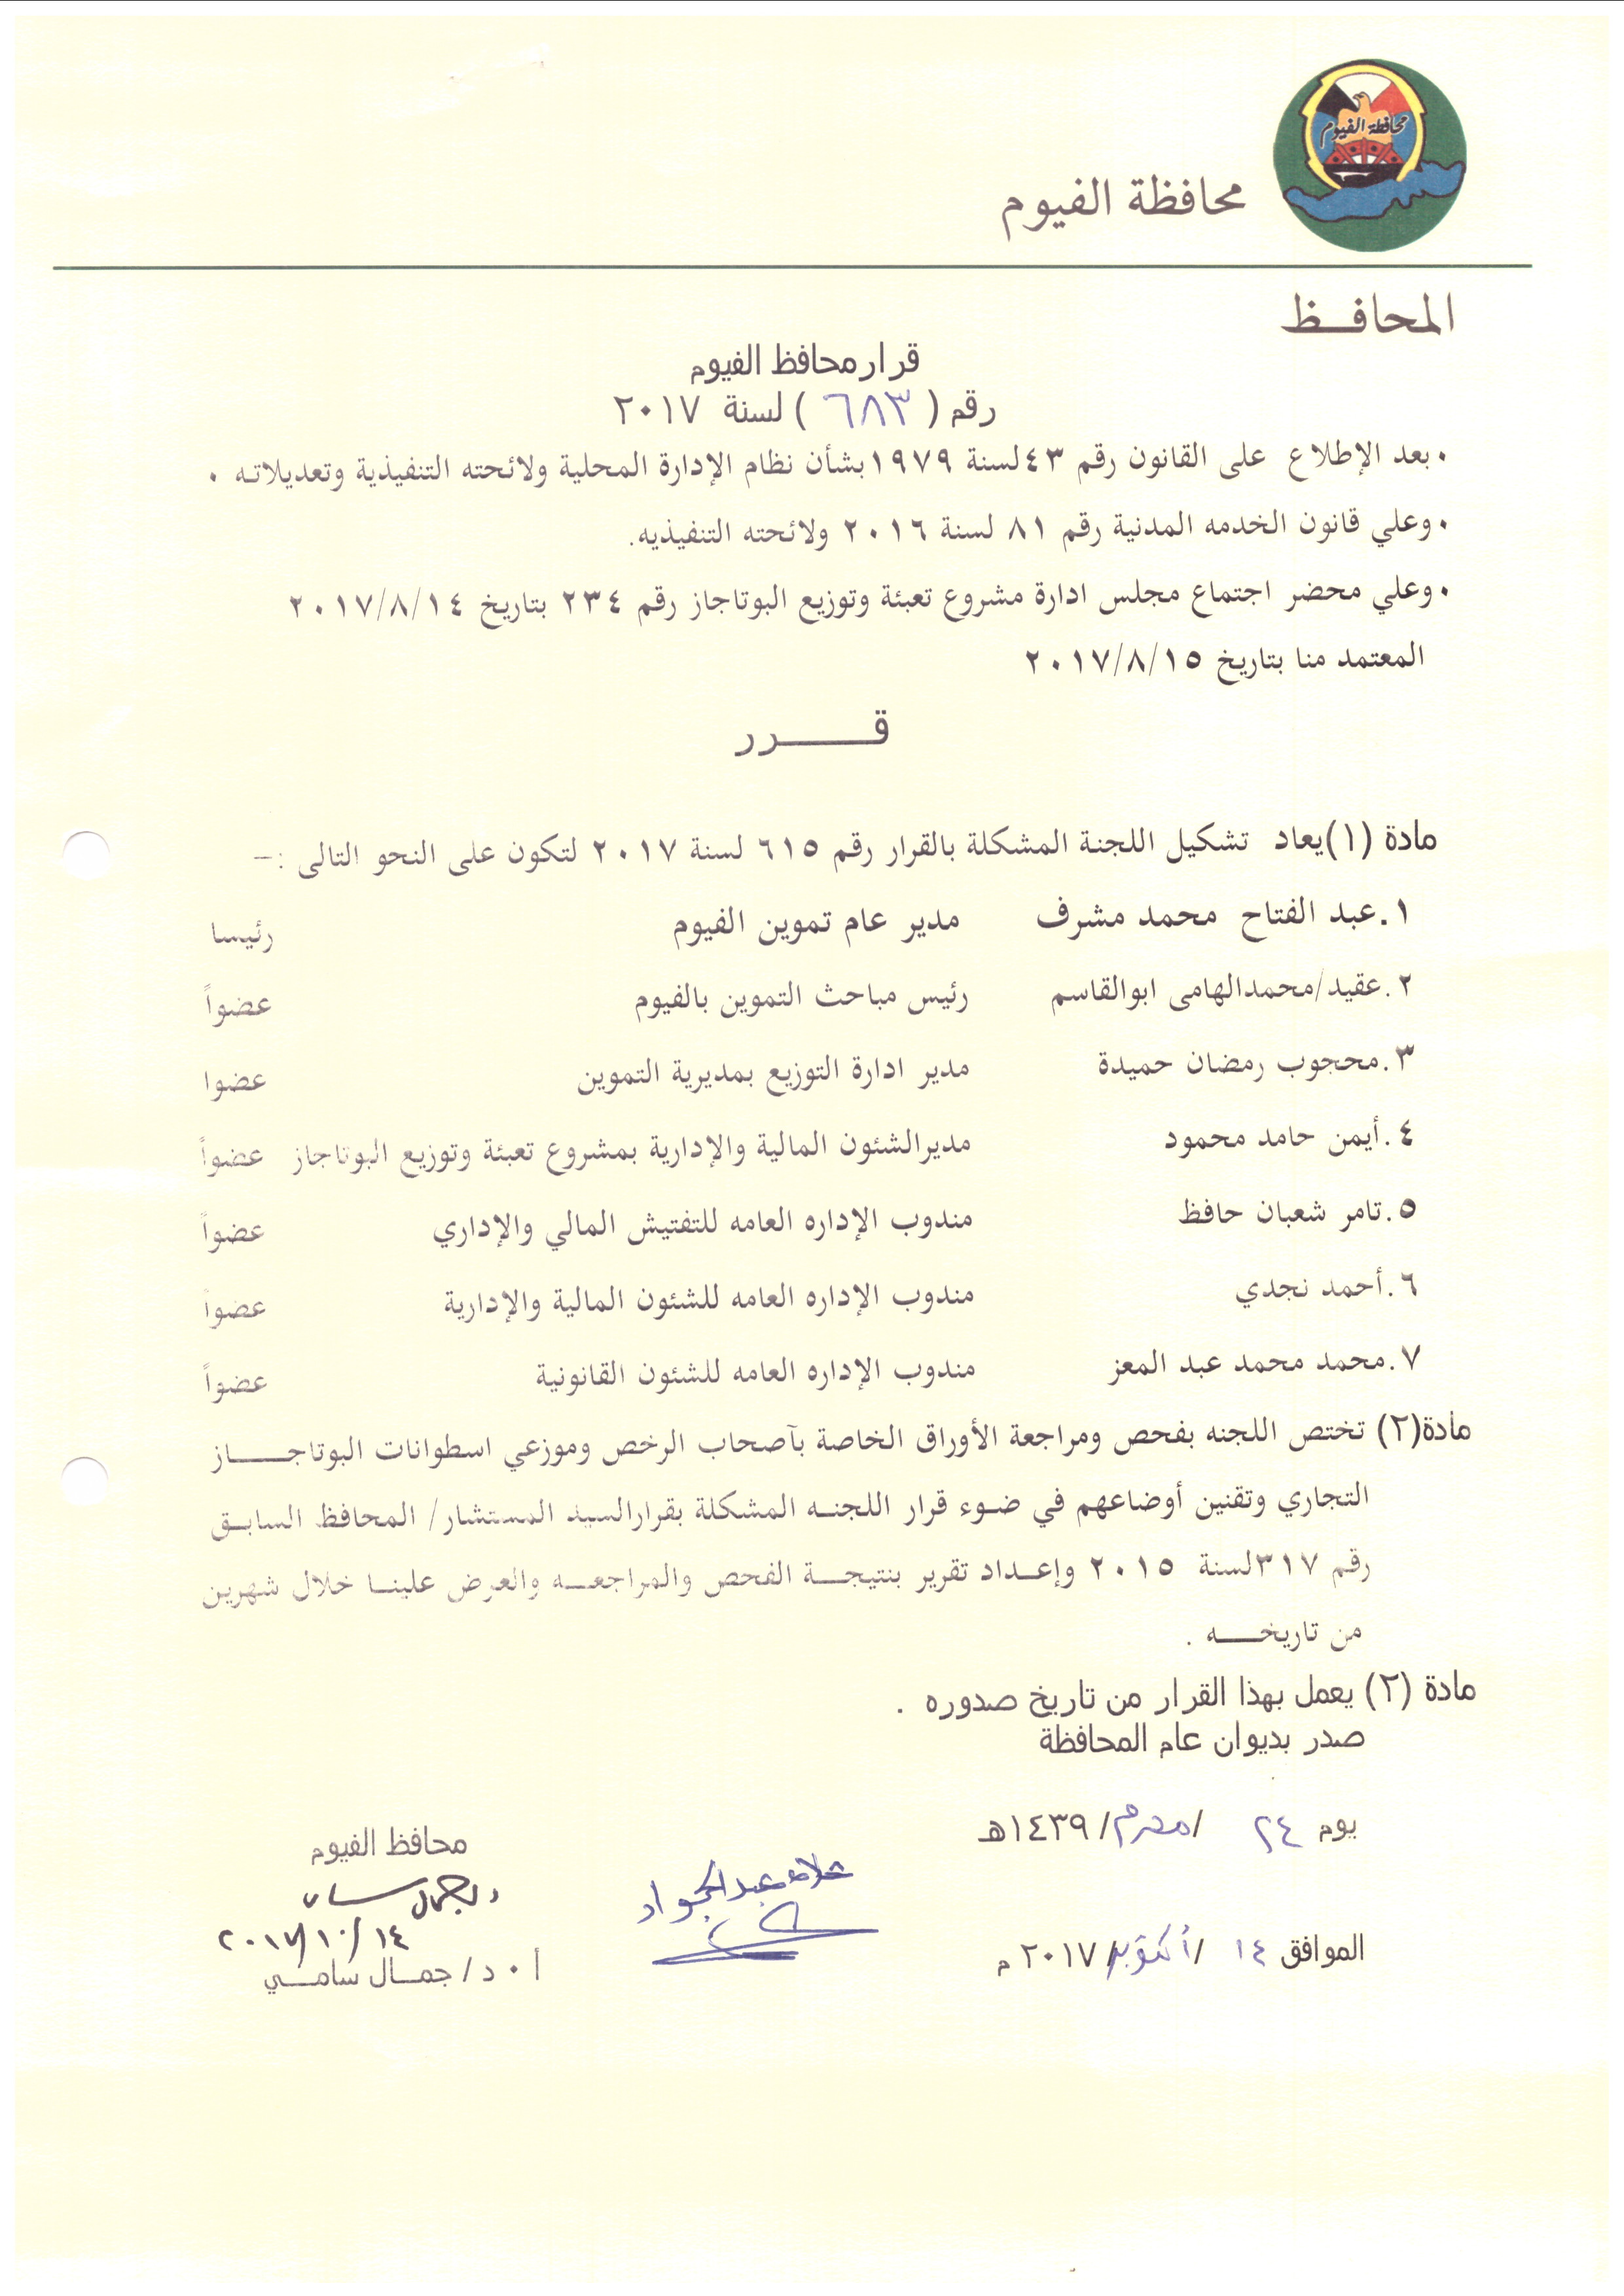 محافظة الفيوم
محافظة الفيوم
المحافـظ
قرار محافظ الفيوم
رقم ( ٦٨٣ ) لسنة ٢٠١٧
• بعد الإطلاع على القانون رقم ٤٣ لسنة ١٩٧٩ بشأن نظام الإدارة المحلية ولائحته التنفيذية وتعديلاته ٠
• وعلي قانون الخدمه المدنية رقم ٨١ لسنة ٢٠١٦ ولائحته التنفيذيه.
• وعلي محضر اجتماع مجلس ادارة مشروع تعبئة وتوزيع البوتاجاز رقم ٢٣٤ بتاريخ ٢٠١٧/٨/١٤
المعتمد منا بتاريخ ٢٠١٧/٨/١٥
قـــــرر
مادة (١) يعاد تشكيل اللجنة المشكلة بالقرار رقم ٦١٥ لسنة ٢٠١٧ لتكون على النحو التالى :-
١. عبد الفتاح محمد مشرف مدير عام تموين الفيوم رئيسا
٢. عقيد/محمدالهامى ابوالقاسم رئيس مباحث التموين بالفيوم عضواً
٣. محجوب رمضان حميدة مدير ادارة التوزيع بمديرية التموين عضوا
٤. أيمن حامد محمود مديرالشئون المالية والإدارية بمشروع تعبئة وتوزيع البوتاجاز عضواً
٥. تامر شعبان حافظ مندوب الإداره العامه للتفتيش المالي والإداري عضواً
٦. أحمد نجدي مندوب الإداره العامه للشئون المالية والإدارية عضواً
٧. محمد محمد عبد المعز مندوب الإداره العامه للشئون القانونية عضواً
مادة(٢) تختص اللجنه بفحص ومراجعة الأوراق الخاصة بآصحاب الرخص وموزعي اسطوانات البوتاجــــاز
التجاري وتقنين أوضاعهم في ضوء قرار اللجنـه المشكلة بقرارالسيد المستشار/ المحافظ السابـق
رقم ٣١٧لسنة ٢٠١٥ وإعـداد تقرير بنتيجـــة الفحص والمراجعـــه والعرض علينـا خلال شهرين
من تاريخـــه .
مادة (٢) يعمل بهذا القرار من تاريخ صدوره .
صدر بديوان عام المحافظة
يوم ٢٤ /محرم/ ١٤٣٩هـ
محافظ الفيوم
علاء عبدالجواد
٢٠١٧/١٠/١٤
الموافق ١٤ /أكتوبر/ ٢٠١٧ م
أ ٠ د/ جمـال سامـي